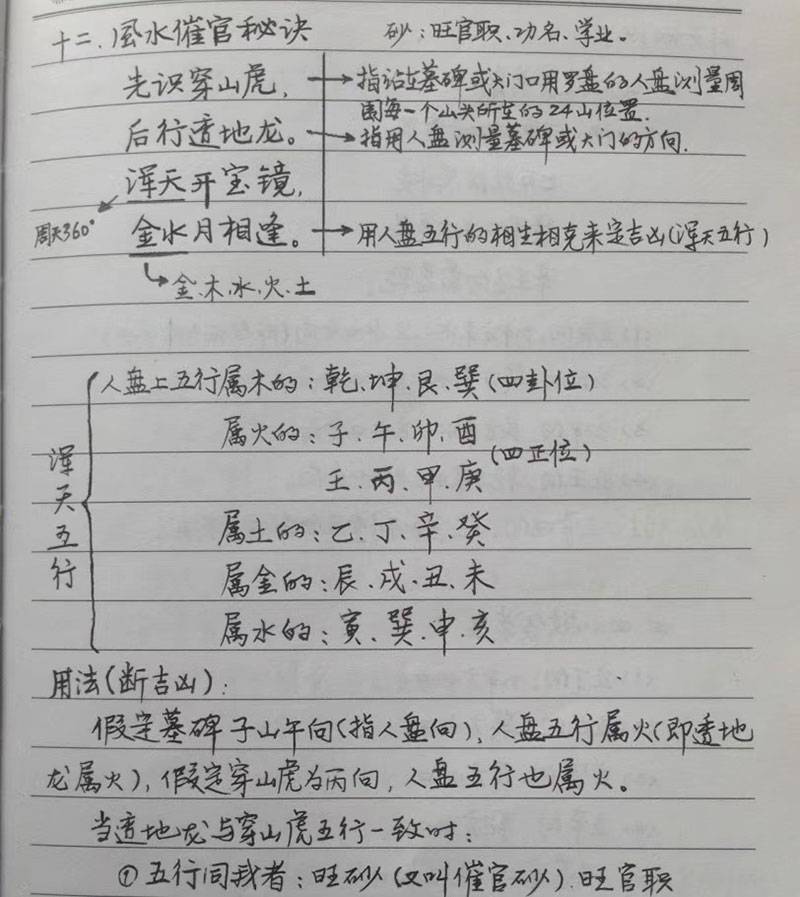 十二.風水催官秘诀 砂:旺官职、功名、学业。
先识穿山虎, → 指站在墓碑或大门口用罗盘的人盘测量周
围每一个山头所在的24山位置.
后行透地龙。→ 指用人盘测量墓碑或大门的方向.
浑天开宝镜,
周天360°
金水月相逢。→ 用人盘五行的相生相克来定吉凶(浑天五行)
金.木.水.火.土
浑天五行
人盘上五行属木的:乾、坤、艮、巽(四卦位)
属火的:子、午、卯、酉
(四正位)
壬、丙、甲、庚
属土的:乙、丁、辛、癸
属金的:辰、戌、丑、未
属水的:寅、巽、申、亥
用法(断吉凶):
假定墓碑子山午向(指人盘向),人盘五行属火(即透地
龙属火),假定穿山虎为丙向,人盘五行也属火。
当透地龙与穿山虎五行一致时:
①五行同我者:旺砂(又叫催官砂).旺官职